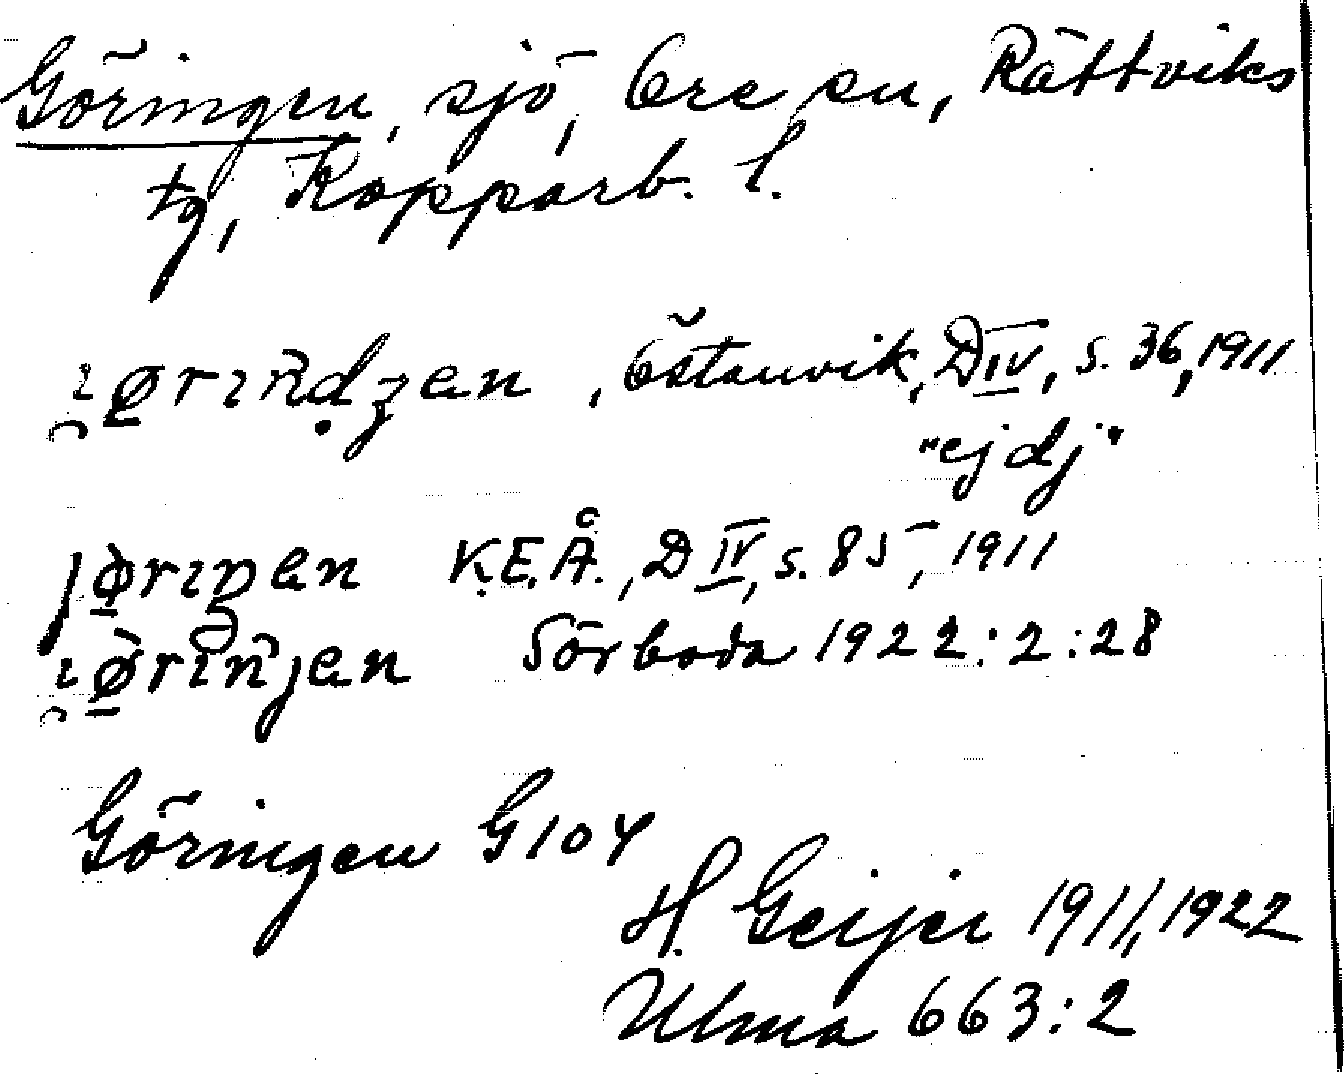 Göringen, sjö, Ore sn, Rättviks
tg, Kopparb. l.
, Östanvik, D IV, s. 36, 1911
"ej dj"
K.E.Å., D IV, s. 85, 1911
Sörboda 1922:2:28
Göringen G 104
H. Geijer 1911, 1922
Ulma 663:2